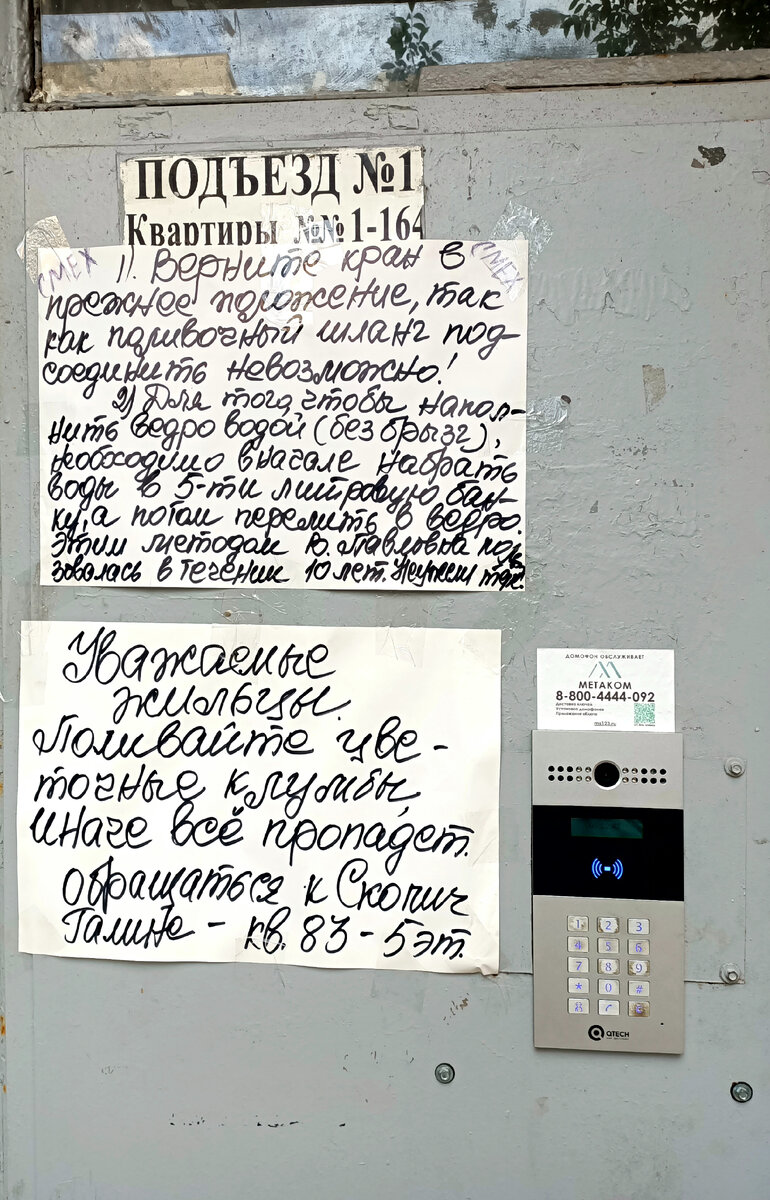 ПОДЪЕЗД №1
Квартиры №№ 1-164
СМЕХ
СМЕХ
1). Верните кран в
прежнее положение, так
как поливочный шланг под-
соединить невозможно!
2) Для того, чтобы напол-
нить ведро водой (без брызг),
необходимо вначале набрать
воды в 5-ти литровую бан-
ку, а потом перелить в ведро.
Этим методом Ю. Павловна поль
зовалась в течении 10 лет. Неужели
Уважаемые
жильцы.
Поливайте цве-
точные клумбы,
иначе всё пропадёт.
Обращаться к Скопич
Галине - кв. 83 - 5 эт.
ДОМОФОН ОБСЛУЖИВАЕТ
МЕТАКОМ
8-800-4444-092
Доставка ключей
Установка домофонов
Приложение
1 2 3
4 5 6
7 8 9
* 0 #
C
QTECH